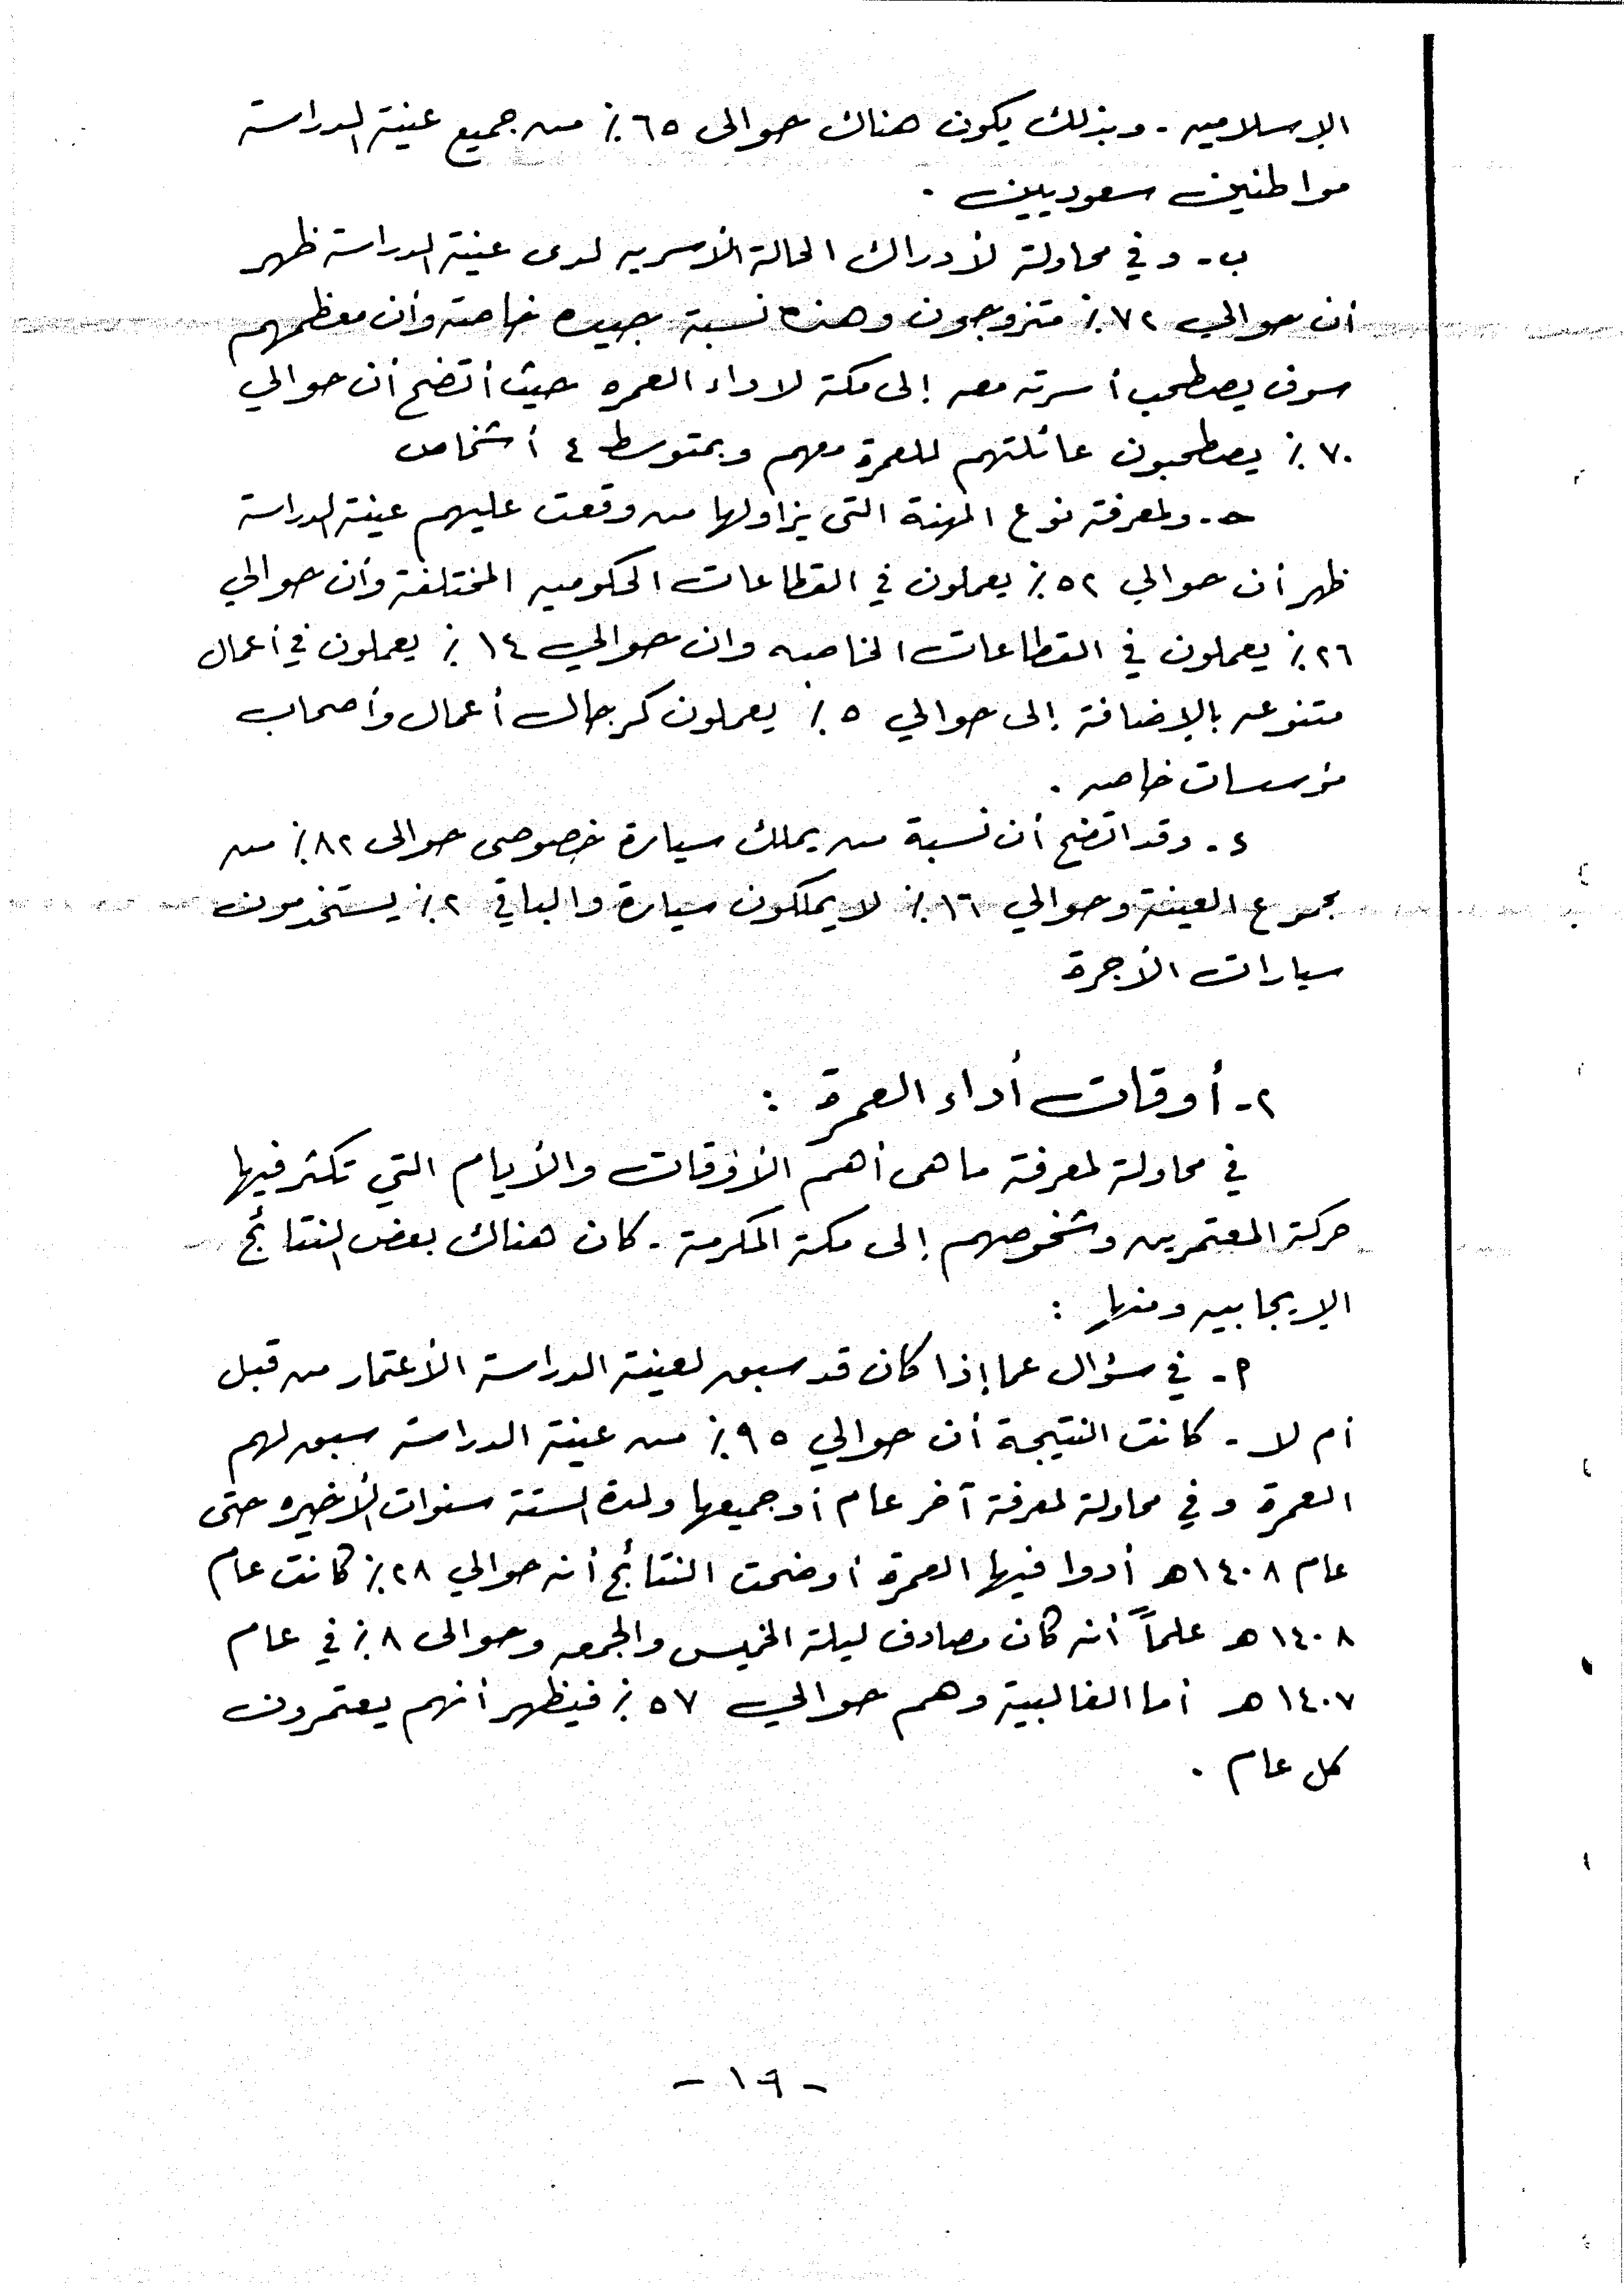 الإسلاميه - وبذلك يكون هناك حوالى ٦٥٪ من جميع عينة الدراسة
مواطنين سعوديين .
ب - وفي محاولة لأدراك الحالة الأسريه لدى عينة الدراسة ظهر
أن حوالي ٧٢٪ متزوجون وهذه نسبة جيده خاصة وأن معظمهم
سوف يصطحب أسرته معه إلى مكة لاداء العمره حيث أتضح أن حوالي
٧٠٪ يصطحبون عائلتهم للعمرة معهم وبمتوسط ٤ أشخاص
حـ - ولمعرفة نوع المهنة التى يزاولها من وقعت عليهم عينة الدراسة
ظهر أن حوالي ٥٢٪ يعملون في القطاعات الحكوميه المختلفة وأن حوالي
٢٦٪ يعملون في القطاعات الخاصه وان حوالي ١٤٪ يعملون في أعمال
متنوعه بالإضافة إلى حوالي ٥٪ يعملون كرجال أعمال وأصحاب
مؤسسات خاصه .
د - وقد اتضح أن نسبة من يملك سيارة خصوصى حوالى ٨٢٪ من
مجموع العينة وحوالي ١٦٪ لا يملكون سيارة والباقي ٢٪ يستخدمون
سيارات الأجرة
٢ - أوقات أداء العمرة :
في محاولة لمعرفة ما هى أهم الأوقات والأيام التي تكثر فيها
حركة المعتمرين وشخوصهم إلى مكة المكرمة - كان هناك بعض النتائج
الإيجابيه ومنها :
٢ - في سؤال عما إذا كان قد سبق لعينة الدراسة الأعتمار من قبل
أم لا - كانت النتيجة أن حوالي ٩٥٪ من عينة الدراسة سبق لهم
العمرة وفي محاولة لمعرفة آخر عام أو جميعها ولمدة الستة سنوات الأخيره حتى
عام ١٤٠٨هـ أدوا فيها العمرة أوضحت النتائج أنه حوالي ٢٨٪ كانت عام
١٤٠٨هـ علماً أنه كان مصادف ليلة الخميس والجمعه وحوالى ٨٪ في عام
١٤٠٧هـ أما الغالبية وهم حوالي ٥٧٪ فيظهر أنهم يعتمرون
كل عام .
- ١٩ -